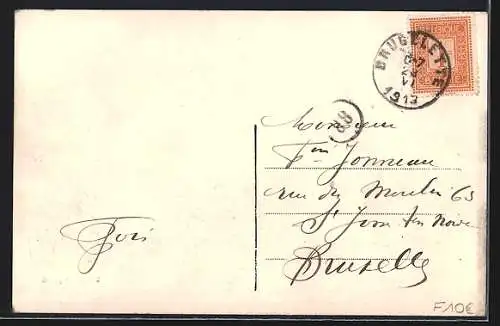 BRUGELETTE
6-7
1913
88
Monsieur
Fm Jonneau
rue du Moulin 63
St Josse ten Noode
Bruxelles
Foris
F10€